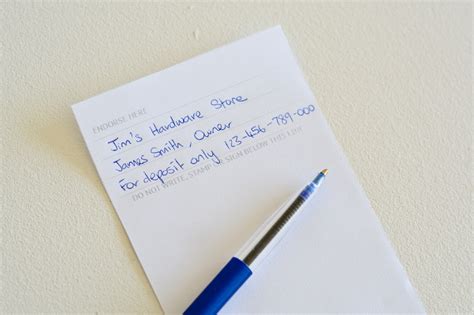 ENDORSE HERE
Jim's Hardware Store
James Smith, Owner
For deposit only 123-456-789-000
DO NOT WRITE, STAMP OR SIGN BELOW THIS LINE